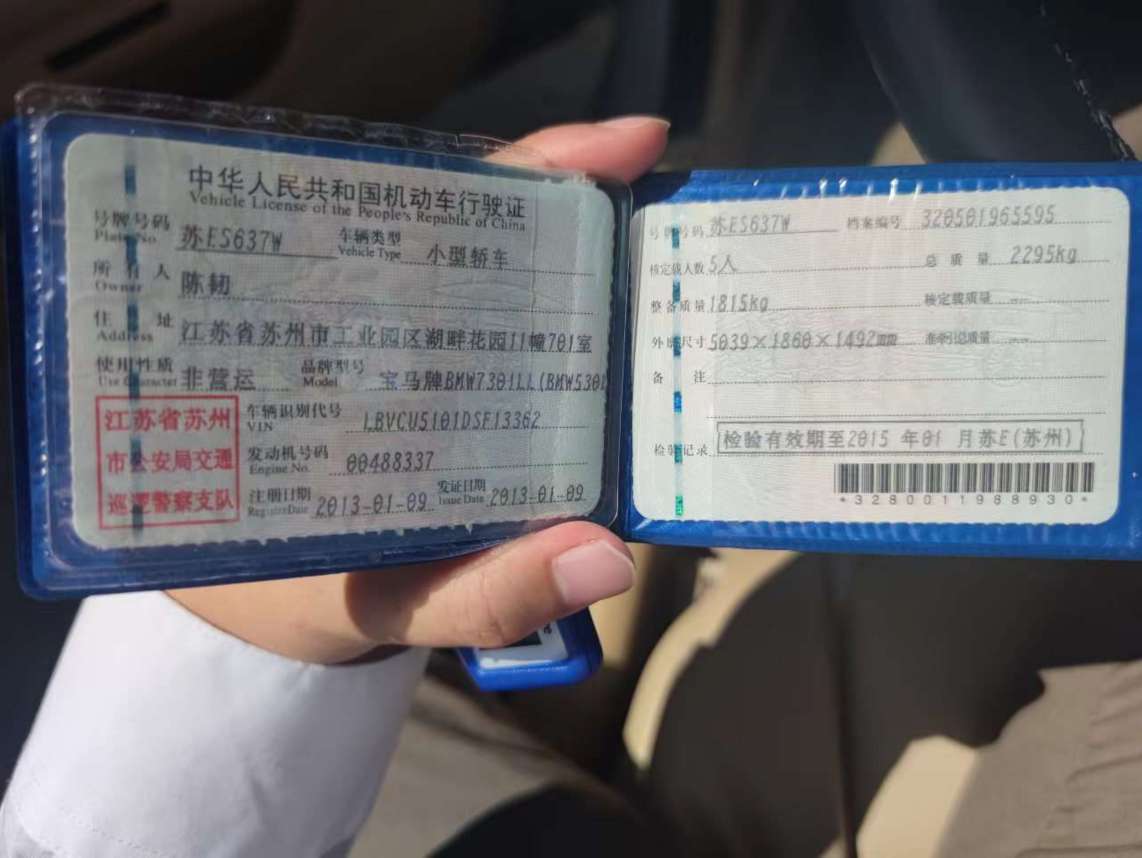 中华人民共和国机动车行驶证
Vehicle License of the People's Republic of China
号牌号码 苏ES637W 车辆类型 小型轿车
Plate No. Vehicle Type
所有人 陈韧
Owner
住址 江苏省苏州市工业园区湖畔花园11幢701室
Address
使用性质 非营运 品牌型号 宝马牌BMW7301LL(BMW530
Use Character Model
江苏省苏州
市公安局交通
巡逻警察支队
车辆识别代号 LBVCU5101DSF13362
VIN
发动机号码 00488337
Engine No.
注册日期 2013-01-09 发证日期 2013-01-09
Register Date Issue Date
号牌号码 苏ES637W 档案编号 320501965595
核定载人数 5人 总质量 2295kg
整备质量 1815kg 核定载质量 --
外廓尺寸 5039×1860×1492mm 准牵引总质量 --
备注
检验记录 检验有效期至2015年01月苏E(苏州)
*3280011988930*